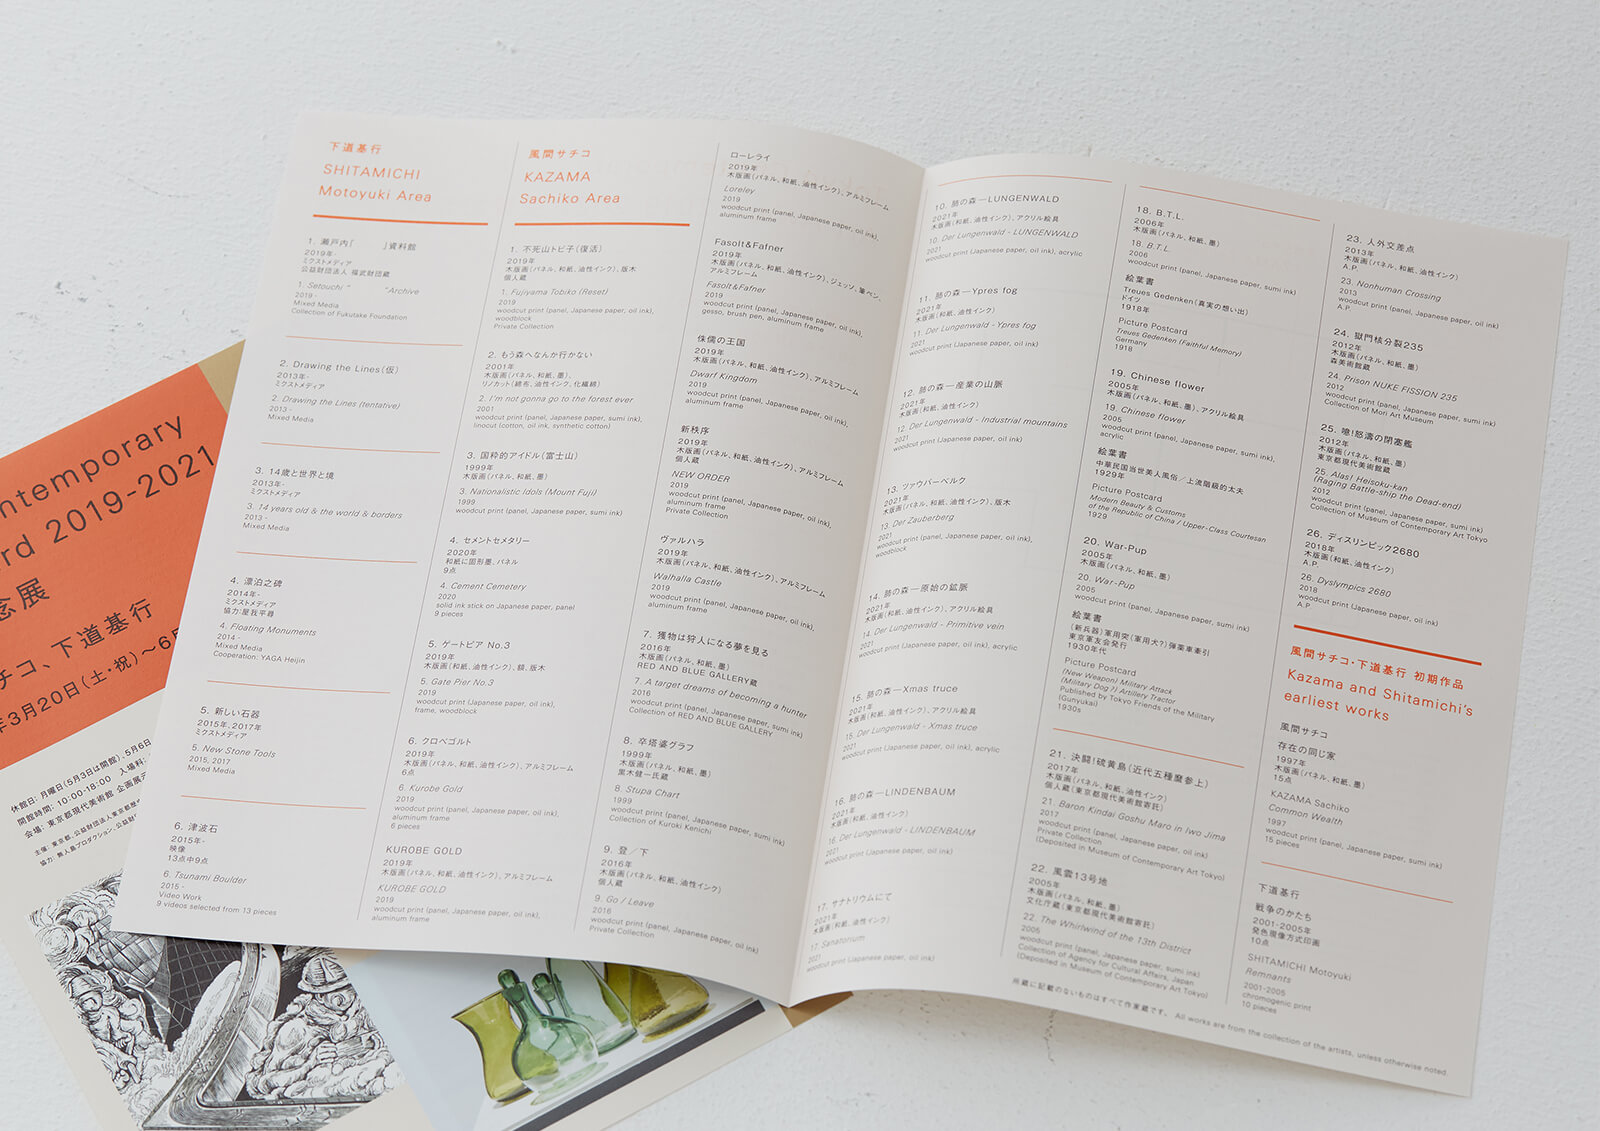 下道基行
SHITAMICHI
Motoyuki Area
1. 瀬戸内「　　　」資料館
2019年-
ミクストメディア
公益財団法人 福武財団蔵
1. Setouchi “　　　” Archive
2019 -
Mixed Media
Collection of Fukutake Foundation
2. Drawing the Lines（仮）
2013年-
ミクストメディア
2. Drawing the Lines (tentative)
2013 -
Mixed Media
3. 14歳と世界と境
2013年-
ミクストメディア
3. 14 years old & the world & borders
2013 -
Mixed Media
4. 漂泊之碑
2014年-
ミクストメディア
協力：屋我平尋
4. Floating Monuments
2014 -
Mixed Media
Cooperation: YAGA Heijin
5. 新しい石器
2015年、2017年
ミクストメディア
5. New Stone Tools
2015, 2017
Mixed Media
6. 津波石
2015年-
映像
13点中9点
6. Tsunami Boulder
2015 -
Video Work
9 videos selected from 13 pieces
風間サチコ
KAZAMA
Sachiko Area
1. 不死山トビ子（復活）
2019年
木版画（パネル、和紙、油性インク）、版木
個人蔵
1. Fujiyama Tobiko (Reset)
2019
woodcut print (panel, Japanese paper, oil ink),
woodblock
Private Collection
2. もう森へなんか行かない
2001年
木版画（パネル、和紙、墨）、
リノカット（綿布、油性インク、化繊綿）
2. I'm not gonna go to the forest ever
2001
woodcut print (panel, Japanese paper, sumi ink),
linocut (cotton, oil ink, synthetic cotton)
3. 国粋的アイドル（富士山）
1999年
木版画（パネル、和紙、墨）
3. Nationalistic Idols (Mount Fuji)
1999
woodcut print (panel, Japanese paper, sumi ink)
4. セメントセメタリー
2020年
和紙に固形墨、パネル
9点
4. Cement Cemetery
2020
solid ink stick on Japanese paper, panel
9 pieces
5. ゲートピア No.3
2019年
木版画（パネル、和紙、油性インク）、額、版木
5. Gate Pier No.3
2019
woodcut print (panel, Japanese paper, oil ink),
frame, woodblock
6. クロベゴルト
2019年
木版画（パネル、和紙、油性インク）、アルミフレーム
6点
6. Kurobe Gold
2019
woodcut print (panel, Japanese paper, oil ink),
aluminum frame
6 pieces
KUROBE GOLD
2019年
木版画（パネル、和紙、油性インク）、アルミフレーム
KUROBE GOLD
2019
woodcut print (panel, Japanese paper, oil ink),
aluminum frame
ローレライ
2019年
木版画（パネル、和紙、油性インク）、アルミフレーム
Loreley
2019
woodcut print (panel, Japanese paper, oil ink),
aluminum frame
Fasolt&Fafner
2019年
木版画（パネル、和紙、油性インク）、ジェッソ、筆ペン、
アルミフレーム
Fasolt&Fafner
2019
woodcut print (panel, Japanese paper, oil ink),
gesso, brush pen, aluminum frame
侏儒の王国
2019年
木版画（パネル、和紙、油性インク）、アルミフレーム
Dwarf Kingdom
2019
woodcut print (panel, Japanese paper, oil ink),
aluminum frame
新秩序
2019年
木版画（パネル、和紙、油性インク）、アルミフレーム
個人蔵
NEW ORDER
2019
woodcut print (panel, Japanese paper, oil ink),
aluminum frame
Private Collection
ヴァルハラ
2019年
木版画（パネル、和紙、油性インク）、アルミフレーム
Walhalla Castle
2019
woodcut print (panel, Japanese paper, oil ink),
aluminum frame
7. 獲物は狩人になる夢を見る
2016年
木版画（パネル、和紙、墨）
RED AND BLUE GALLERY蔵
7. A target dreams of becoming a hunter
2016
woodcut print (panel, Japanese paper, sumi ink)
Collection of RED AND BLUE GALLERY
8. 卒塔婆グラフ
1999年
木版画（パネル、和紙、墨）
黒木健一氏蔵
8. Stupa Chart
1999
woodcut print (panel, Japanese paper, sumi ink)
Collection of Kuroki Kenichi
9. 登／下
2016年
木版画（パネル、和紙、油性インク）
個人蔵
9. Go / Leave
2016
woodcut print (panel, Japanese paper, oil ink)
Private Collection
10. 肺の森—LUNGENWALD
2021年
木版画（和紙、油性インク）、アクリル絵具
10. Der Lungenwald - LUNGENWALD
2021
woodcut print (Japanese paper, oil ink), acrylic
11. 肺の森—Ypres fog
2021年
木版画（和紙、油性インク）
11. Der Lungenwald - Ypres fog
2021
woodcut print (Japanese paper, oil ink)
12. 肺の森—産業の山脈
2021年
木版画（和紙、油性インク）
12. Der Lungenwald - Industrial mountains
2021
woodcut print (Japanese paper, oil ink)
13. ツァウバーベルク
2021年
木版画（パネル、和紙、油性インク）、版木
13. Der Zauberberg
2021
woodcut print (panel, Japanese paper, oil ink),
woodblock
14. 肺の森—原始の鉱脈
2021年
木版画（和紙、油性インク）、アクリル絵具
14. Der Lungenwald - Primitive vein
2021
woodcut print (Japanese paper, oil ink), acrylic
15. 肺の森—Xmas truce
2021年
木版画（和紙、油性インク）、アクリル絵具
15. Der Lungenwald - Xmas truce
2021
woodcut print (Japanese paper, oil ink), acrylic
16. 肺の森—LINDENBAUM
2021年
木版画（和紙、油性インク）
16. Der Lungenwald - LINDENBAUM
2021
woodcut print (Japanese paper, oil ink)
17. サナトリウムにて
2021年
木版画（和紙、油性インク）
17. Sanatorium
2021
woodcut print (Japanese paper, oil ink)
18. B.T.L.
2006年
木版画（パネル、和紙、墨）
18. B.T.L.
2006
woodcut print (panel, Japanese paper, sumi ink)
絵葉書
Treues Gedenken（真実の想い出）
ドイツ
1918年
Picture Postcard
Treues Gedenken (Faithful Memory)
Germany
1918
19. Chinese flower
2005年
木版画（パネル、和紙、墨）、アクリル絵具
19. Chinese flower
2005
woodcut print (panel, Japanese paper, sumi ink),
acrylic
絵葉書
中華民国当世美人風俗／上流階級的太夫
1929年
Picture Postcard
Modern Beauty & Customs
of the Republic of China / Upper-Class Courtesan
1929
20. War-Pup
2005年
木版画（パネル、和紙、墨）
20. War-Pup
2005
woodcut print (panel, Japanese paper, sumi ink)
絵葉書
（新兵器）軍用突（軍用犬?）弾薬車牽引
東京軍友会発行
1930年代
Picture Postcard
(New Weapon) Military Attack
(Military Dog ?) Artillery Tractor
Published by Tokyo Friends of the Military
(Gunyukai)
1930s
21. 決闘!硫黄島（近代五種麿参上）
2017年
木版画（パネル、和紙、油性インク）
個人蔵（東京都現代美術館寄託）
21. Baron Kindai Goshu Maro in Iwo Jima
2017
woodcut print (panel, Japanese paper, oil ink)
Private Collection
(Deposited in Museum of Contemporary Art Tokyo)
22. 風雲13号地
2005年
木版画（パネル、和紙、墨）
文化庁蔵（東京都現代美術館寄託）
22. The Whirlwind of the 13th District
2005
woodcut print (panel, Japanese paper, sumi ink)
Collection of Agency for Cultural Affairs, Japan
(Deposited in Museum of Contemporary Art Tokyo)
23. 人外交差点
2013年
木版画（パネル、和紙、油性インク）
A.P.
23. Nonhuman Crossing
2013
woodcut print (panel, Japanese paper, oil ink)
A.P.
24. 獄門核分裂235
2012年
木版画（パネル、和紙、墨）
森美術館蔵
24. Prison NUKE FISSION 235
2012
woodcut print (panel, Japanese paper, sumi ink)
Collection of Mori Art Museum
25. 噫!怒濤の閉塞艦
2012年
木版画（パネル、和紙、墨）
東京都現代美術館蔵
25. Alas! Heisoku-kan
(Raging Battle-ship the Dead-end)
2012
woodcut print (panel, Japanese paper, sumi ink)
Collection of Museum of Contemporary Art Tokyo
26. ディスリンピック2680
2018年
木版画（和紙、油性インク）
A.P.
26. Dyslympics 2680
2018
woodcut print (Japanese paper, oil ink)
A.P.
風間サチコ・下道基行 初期作品
Kazama and Shitamichi's
earliest works
風間サチコ
存在の同じ家
1997年
木版画（パネル、和紙、墨）
15点
KAZAMA Sachiko
Common Wealth
1997
woodcut print (panel, Japanese paper, sumi ink)
15 pieces
下道基行
戦争のかたち
2001-2005年
発色現像方式印画
10点
SHITAMICHI Motoyuki
Remnants
2001-2005
chromogenic print
10 pieces
所蔵に記載のないものはすべて作家蔵です。 All works are from the collection of the artists, unless otherwise noted.
ntemporary
rd 2019-2021
念展
チコ、下道基行
年3月20日（土・祝）〜6月
休館日：月曜日（5月3日は開館）、5月6日
開館時間：10:00-18:00 入場料：
会場：東京都現代美術館 企画展示
主催：東京都、公益財団法人東京都歴
協力：無人島プロダクション、公益財